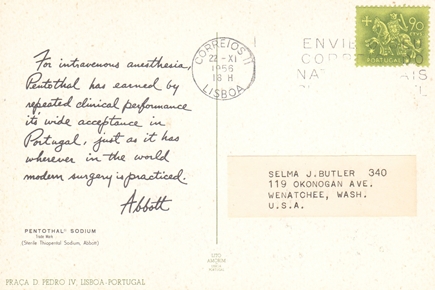 For intravenous anesthesia,
Pentothal has earned by
repeated clinical performance
its wide acceptance in
Portugal, just as it has
wherever in the world
modern surgery is practiced.
Abbott
PENTOTHAL® SODIUM
Trade Mark
(Sterile Thiopental Sodium, Abbott)
PRAÇA D. PEDRO IV, LISBOA-PORTUGAL
CORREIOS
22-XI
1956
18 H
LISBOA
ENVIE
90
PORTUGAL
SELMA J.BUTLER 340
119 OKONOGAN AVE.
WENATCHEE, WASH.
U.S.A.